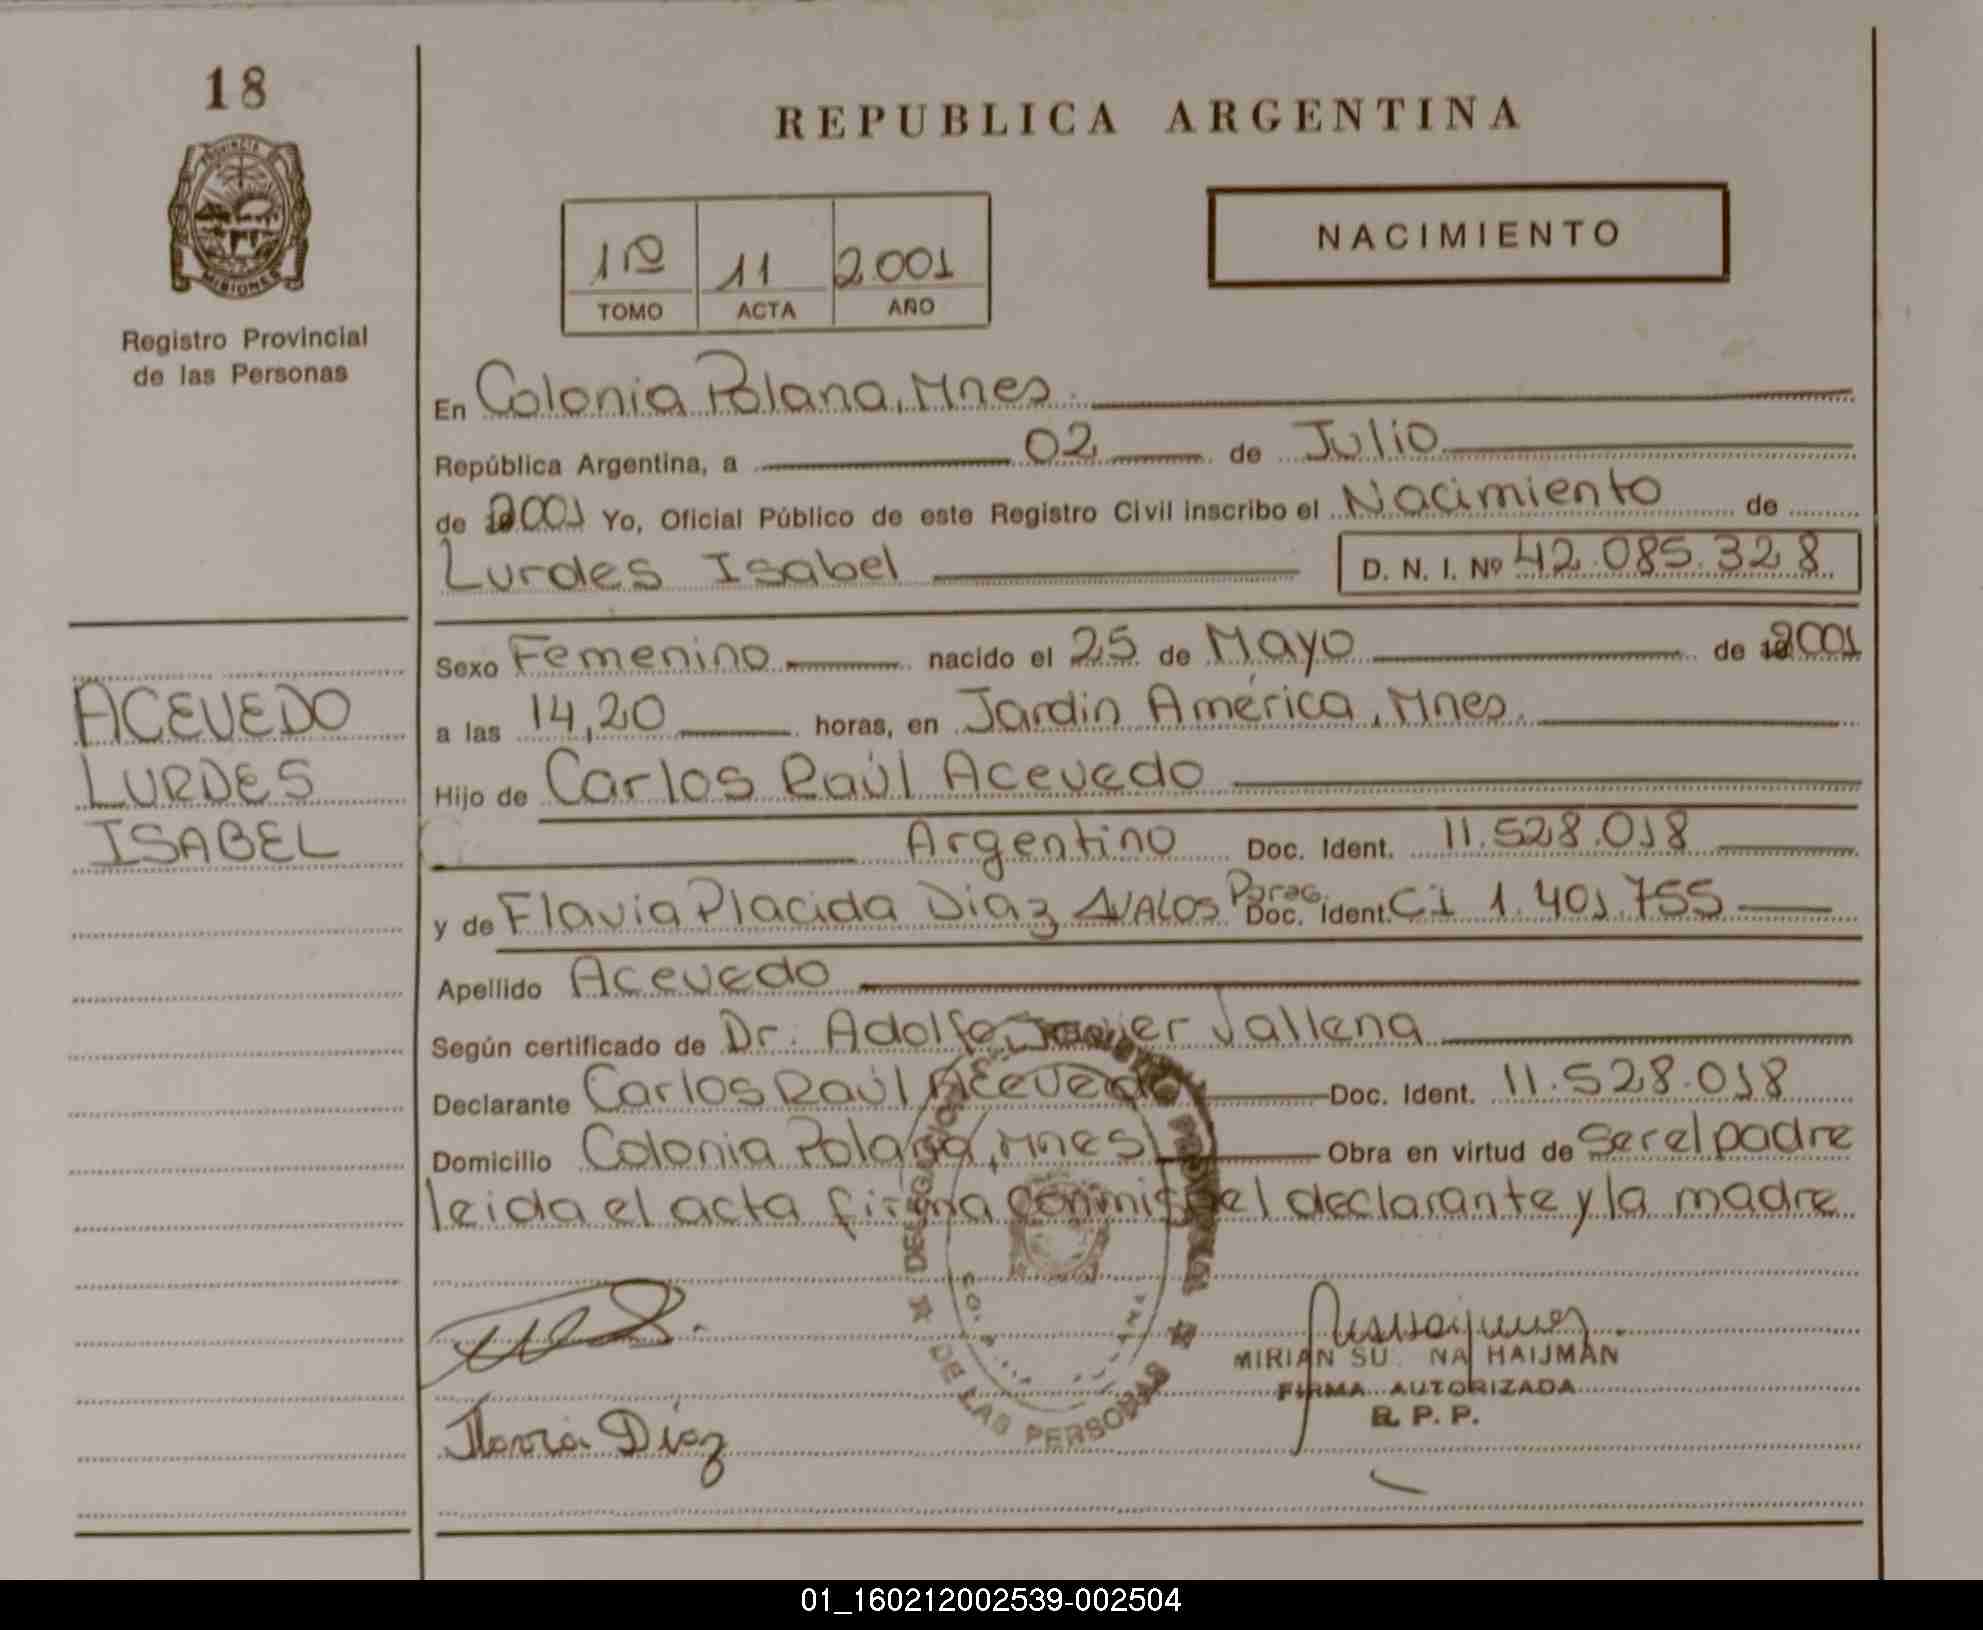 18
PROVINCIA DE
MISIONES
Registro Provincial
de las Personas
ACEVEDO
LURDES
ISABEL
REPUBLICA ARGENTINA
1º 11 2001
TOMO ACTA AÑO
NACIMIENTO
En Colonia Polana, Mnes.
República Argentina, a 02 de Julio
de 2001 Yo, Oficial Público de este Registro Civil inscribo el Nacimiento de
Lurdes Isabel D. N. I. Nº 42.085.328
Sexo Femenino nacido el 25 de Mayo de 2001
a las 14,20 horas, en Jardin América, Mnes.
Hijo de Carlos Raúl Acevedo
Argentino Doc. Ident. 11.528.018
y de Flavia Placida Diaz AVALOS Parag. Doc. Ident. Ci 1.401.755
Apellido Acevedo
Según certificado de Dr. Adolfo Javier Vallena
Declarante Carlos Raúl Acevedo Doc. Ident. 11.528.018
Domicilio Colonia Polana, Mnes Obra en virtud de Ser el padre
leida el acta firma conmigo el declarante y la madre
DELEGACION
DE LAS PERSONAS
MIRIAN SU NA HAIJMAN
FIRMA AUTORIZADA
R. P. P.
Flavia Diaz
01_160212002539-002504